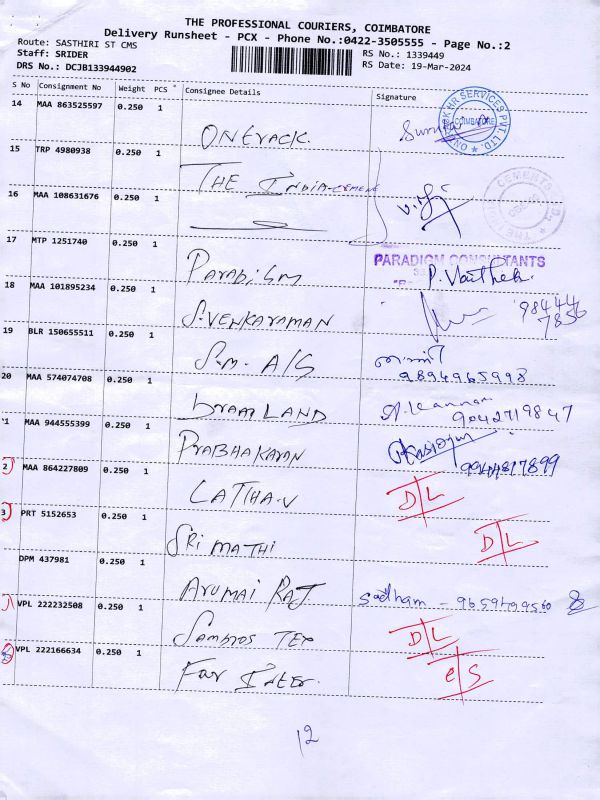 THE PROFESSIONAL COURIERS, COIMBATORE
Delivery Runsheet - PCX - Phone No.:0422-3505555 - Page No.:2
Route: SASTHIRI ST CMS
Staff: SRIDER
DRS No.: DCJB133944902
RS No.: 1339449
RS Date: 19-Mar-2024
S No Consignment No Weight PCS Consignee Details Signature
14 MAA 863525597 0.250 1 ONETRACK
15 TRP 4980938 0.250 1 THE India CEMENT
16 MAA 108631676 0.250 1
17 MTP 1251740 0.250 1 Paradigm PARADIGM CONSULTANTS P. Vaithek
18 MAA 101895234 0.250 1 S.VENKARAMAN 98444 7856
19 BLR 150655511 0.250 1 S.M. A/S 9894965998
20 MAA 574074708 0.250 1 DraamLAND A. Kannan 9042719847
21 MAA 944555399 0.250 1 PRABHAKARAN 9944817899
2 MAA 864227809 0.250 1 LATHA.V D/L
3 PRT 5152653 0.250 1 SRI MATHI D/L
DPM 437981 0.250 1 Arumai RAJ Sadham - 9659499560
VPL 222232508 0.250 1 Sambros TEX D/L
VPL 222166634 0.250 1 For Inter. e/s
12